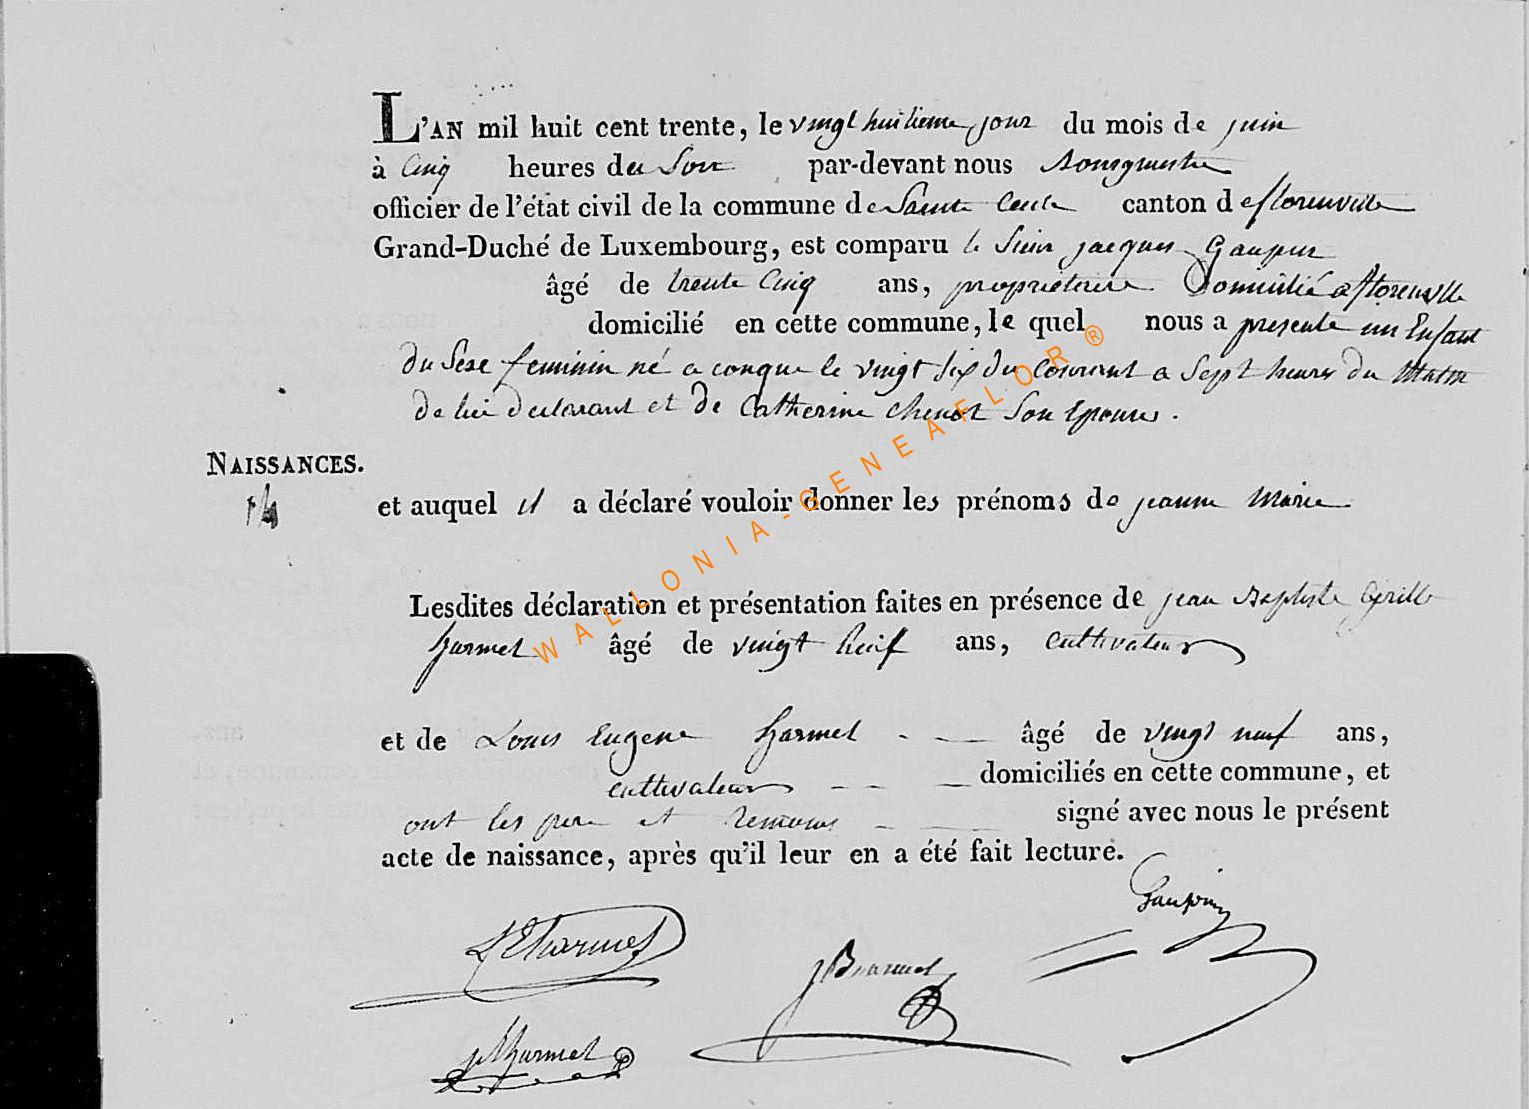 L'AN mil huit cent trente, le vingt huitieme jour du mois de juin
à Cinq heures du Soir par-devant nous Bourgmestre
officier de l'état civil de la commune de Sainte Cecile canton de florenville
Grand-Duché de Luxembourg, est comparu le Sieur jacques Gaupin
âgé de trente Cinq ans, proprietaire Domicilié a florenville
domicilié en cette commune, le quel nous a presente un Enfant
du Sexe feminin né a conque le vingt six du Courant a Sept heures du Matin
de lui declarant et de Catherine Chenot Son Epouse.
NAISSANCES.
14
et auquel il a déclaré vouloir donner les prénoms de jeanne Marie
Lesdites déclaration et présentation faites en présence de jean Baptiste Cyrille
harmel âgé de vingt ans, cultivateur
et de Louis Eugene harmel âgé de vingt neuf ans,
cultivateur domiciliés en cette commune, et
ont les pere et temoins signé avec nous le présent
acte de naissance, après qu'il leur en a été fait lecture.
Gaupin
LEharmel
harmel
WALLONIA-GENEAFLOR®